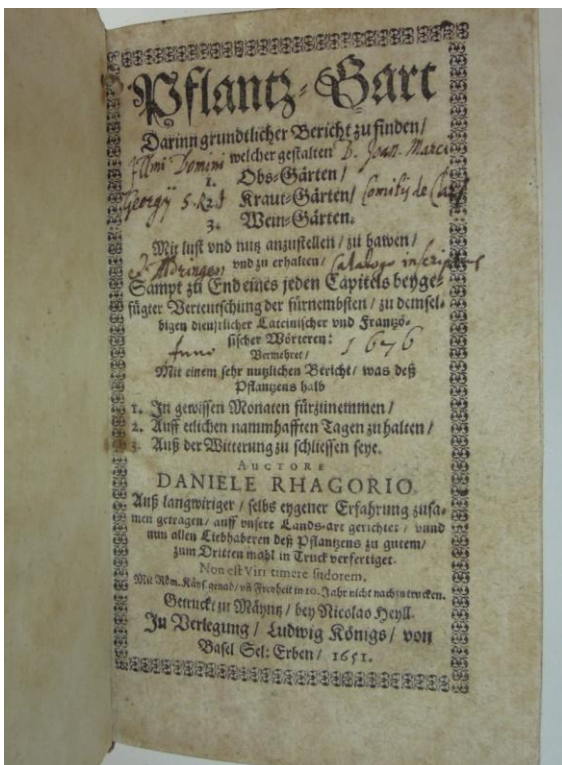 Pflantz-Gart
Darinn grundtlicher Bericht zu finden/
welcher gestalten
Illmi Domini D. Joan. Marci
1. Obs-Gärten/
Georgÿ
2. Kraut-Gärten/
Comitis de
3. Wein-Gärten.
Mit lust vnd nutz anzustellen/ zu bawen/
vnd zu erhalten/
Catalogo inscriptus
Sampt zu End eines jeden Capitels beyge-
fügter Verteutschung der fürnembsten/ zu demsel-
bigen dienstlicher Lateinischer vnd Frantzö-
sischer Wörteren:
Anno 1676
Vermehret/
Mit einem sehr nutzlichen Bericht/ was deß
Pflantzens halb
1. In gewissen Monaten fürzunemmen/
2. Auff etlichen nammhafften Tagen zu halten/
3. Auß der Witterung zu schliessen seye.
AUCTORE
DANIELE RHAGORIO.
Auß langwiriger/ selbs eygener Erfahrung zusa-
men getragen/ auff vnsere Lands-art gerichtet/ vnnd
nun allen Liebhaberen deß Pflantzens zu gutem/
zum Dritten mahl in Truck verfertiget.
Non est Viri timere sudorem.
Mit Röm. Käys. genad/ vñ Freyheit in 10. Jahr nicht nachzutrucken.
Getruckt zu Mäyntz/ bey Nicolas Heyll.
In Verlegung/ Ludwig Königs/ von
Basel Sel: Erben/ 1651.